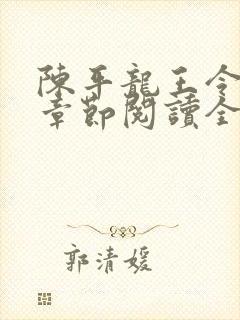 陳平龍王令
章節閱讀全
郭清媛